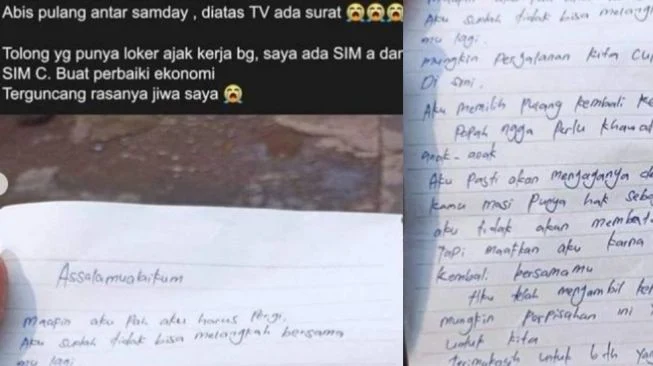 Abis pulang antar samday , diatas TV ada surat 😭😭😭
Tolong yg punya loker ajak kerja bg, saya ada SIM a dan
SIM C. Buat perbaiki ekonomi
Terguncang rasanya jiwa saya 😭
Assalamualaikum
Maafin aku Pah aku harus Pergi.
Aku sudah tidak bisa melangkah bersama
mu lagi
Aku sudah tidak bisa melang
mu lagi.
mungkin Perjalanan kita cu
Di sini.
Aku memilih pulang kembali ke
Papah ngga Perlu khawa
anak-anak
Aku Pasti akan menjaganya de
kamu masi Punya hak seba
aku tidak akan membata
Tapi maafkan aku karna
kembali bersamamu
Aku telah mengambil ke
mungkin perpisahan ini
untuk kita
Terimakasih untuk